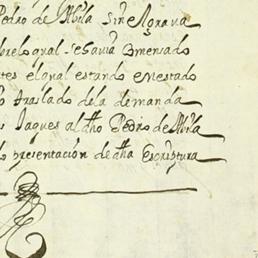 Pedro de Abila sin e Agrava
brelo qual se avia Comensado
tes el qual estando en estado
traslado de la demanda
Jaques al dho Pedro de Abila
presentacion de dha Escriptura